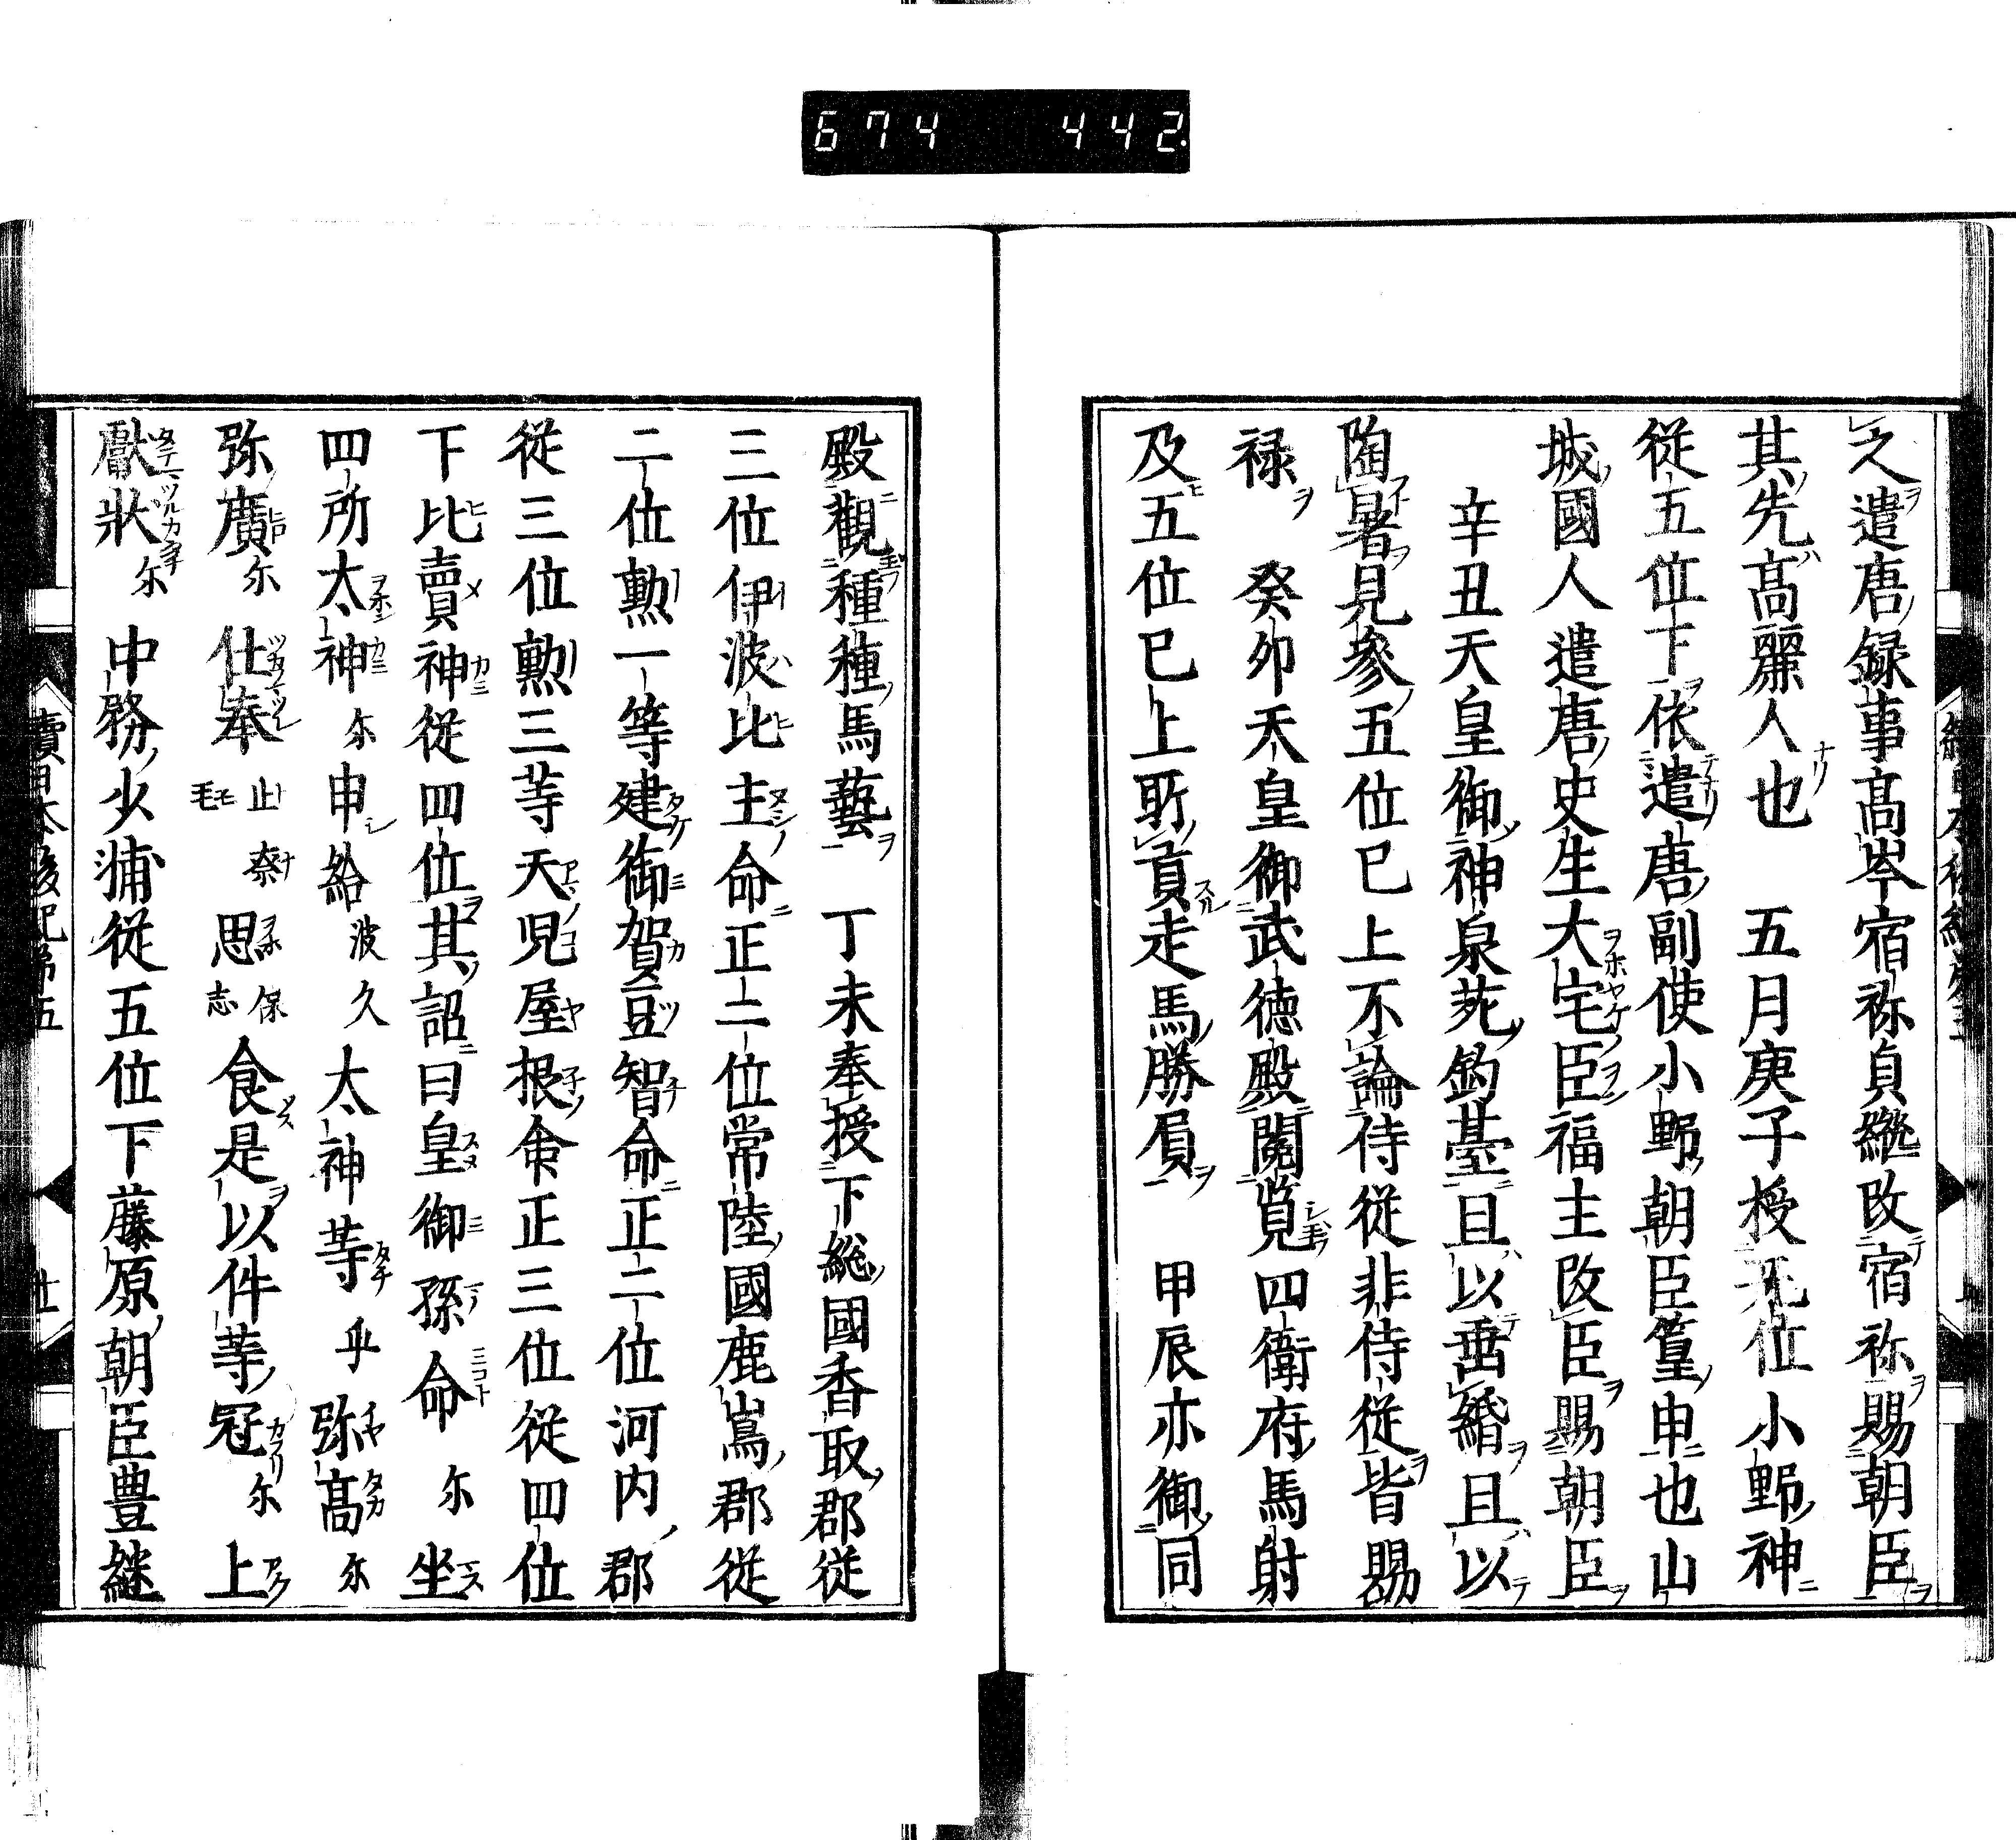 674 442
之遣唐録事髙岑宿祢貞繼改宿祢賜朝臣
其先髙麗人也 五月庚子授无位小野神
從五位下依遣唐副使小野朝臣篁申也山
城國人遣唐史生大宅臣福主改臣賜朝臣
辛丑天皇御神泉苑釣臺且以垂緡且以
陶暑見參五位已上不論侍從非侍從皆賜
禄 癸卯天皇御武徳殿閲覧四衛府馬射
及五位已上所貢走馬勝負 甲辰亦御同
殿觀種種馬藝 丁未奉授下総國香取郡從
三位伊波比主命正二位常陸國鹿嶌郡從
二位勲一等建御賀豆智命正二位河内郡
從三位勲三等天児屋根命正三位從四位
下比賣神從四位其詔曰皇御孫命尓坐
四所太神尓申給波久太神等乎弥髙尓
弥廣尓仕奉止奈毛思保志食是以件等冠尓上
獻狀尓 中務少浦從五位下藤原朝臣豊継